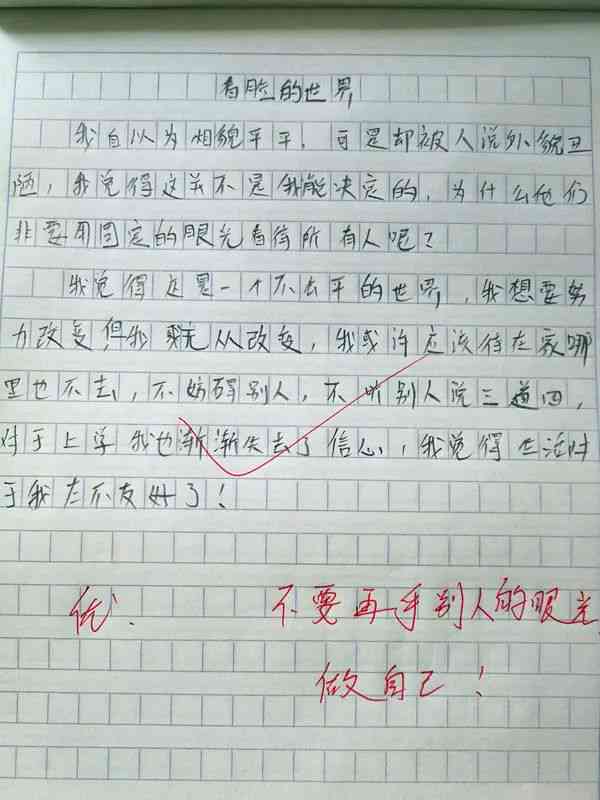 看脸的世界
我自以为相貌平平,可是却被人说外貌丑
陋,我觉得这并不是我能决定的,为什么他们
非要用固定的眼光看待所有人呢?
我觉得这是一个不公平的世界,我想要努
力改变,但我无从改变,我或许应该待在家哪
里也不去,不妨碍别人,不听别人说三道四,
对于上学我也渐渐失去了信心,我觉得生活对
于我太不友好了!
优.
不要再乎别人的眼光
做自己!